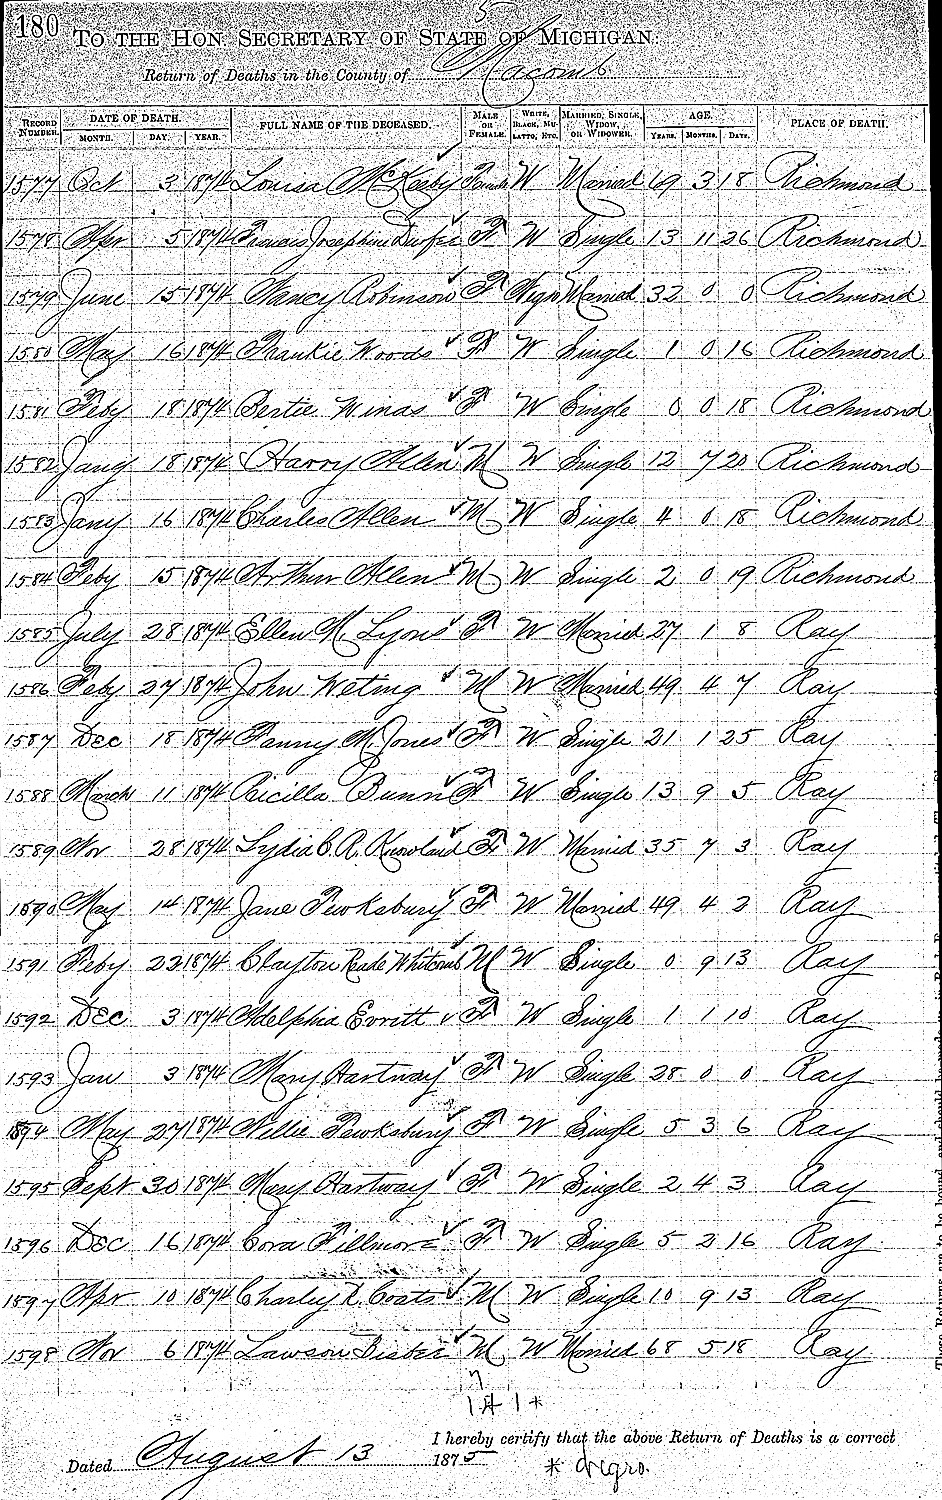 180
5
TO THE HON. SECRETARY OF STATE OF MICHIGAN:
Return of Deaths in the County of Macomb
RECORD NUMBER. DATE OF DEATH. MONTH. DAY. YEAR. FULL NAME OF THE DECEASED. MALE OR FEMALE. WHITE, BLACK, MULATTO, ETC. MARRIED, SINGLE, WIDOW, OR WIDOWER. AGE. YEARS. MONTHS. DAYS. PLACE OF DEATH.
1577 Oct 3 1874 Louisa McKesby Female W Married 69 3 18 Richmond
1578 Apr 5 1874 Francis Josephine F W Single 13 11 26 Richmond
1579 June 15 1874 Nancy Robinson F Negro Married 32 0 0 Richmond
1580 May 16 1874 Frankie Woods F W Single 1 0 16 Richmond
1581 Feby 18 1874 Bertie Winas F W Single 0 0 18 Richmond
1582 Jany 18 1874 Harry Allen M W Single 12 7 20 Richmond
1583 Jany 16 1874 Charles Allen M W Single 4 0 18 Richmond
1584 Feby 15 1874 Arthur Allen M W Single 2 0 19 Richmond
1585 July 28 1874 Ellen M. Lyons F W Married 27 1 8 Ray
1586 Feby 27 1874 John Weting M W Married 49 4 7 Ray
1587 Dec 18 1874 Fanny M. Jones F W Single 21 1 25 Ray
1588 March 11 1874 Pricilla Bunn F W Single 13 9 5 Ray
1589 Nov 28 1874 Lydia C. R. Knowland F W Married 35 7 3 Ray
1590 May 14 1874 Jane Tewksbury F W Married 49 4 2 Ray
1591 Feby 22 1874 Clayton Reade Whitcomb M W Single 0 9 13 Ray
1592 Dec 3 1874 Adelphia Evritt F W Single 1 1 10 Ray
1593 Jan 3 1874 Mary Hartway F W Single 28 0 0 Ray
1594 May 27 1874 Nellie Tewksbury F W Single 5 3 6 Ray
1595 Sept 30 1874 Mary Hartway F W Single 2 4 3 Ray
1596 Dec 16 1874 Cora Fillmore F W Single 5 2 16 Ray
1597 Apr 10 1874 Charley Coats M W Single 10 9 13 Ray
1598 Nov 6 1874 Lawson M W Married 68 5 18 Ray
7
14 1*
I hereby certify that the above Return of Deaths is a correct
Dated August 13 1875
* Negro.